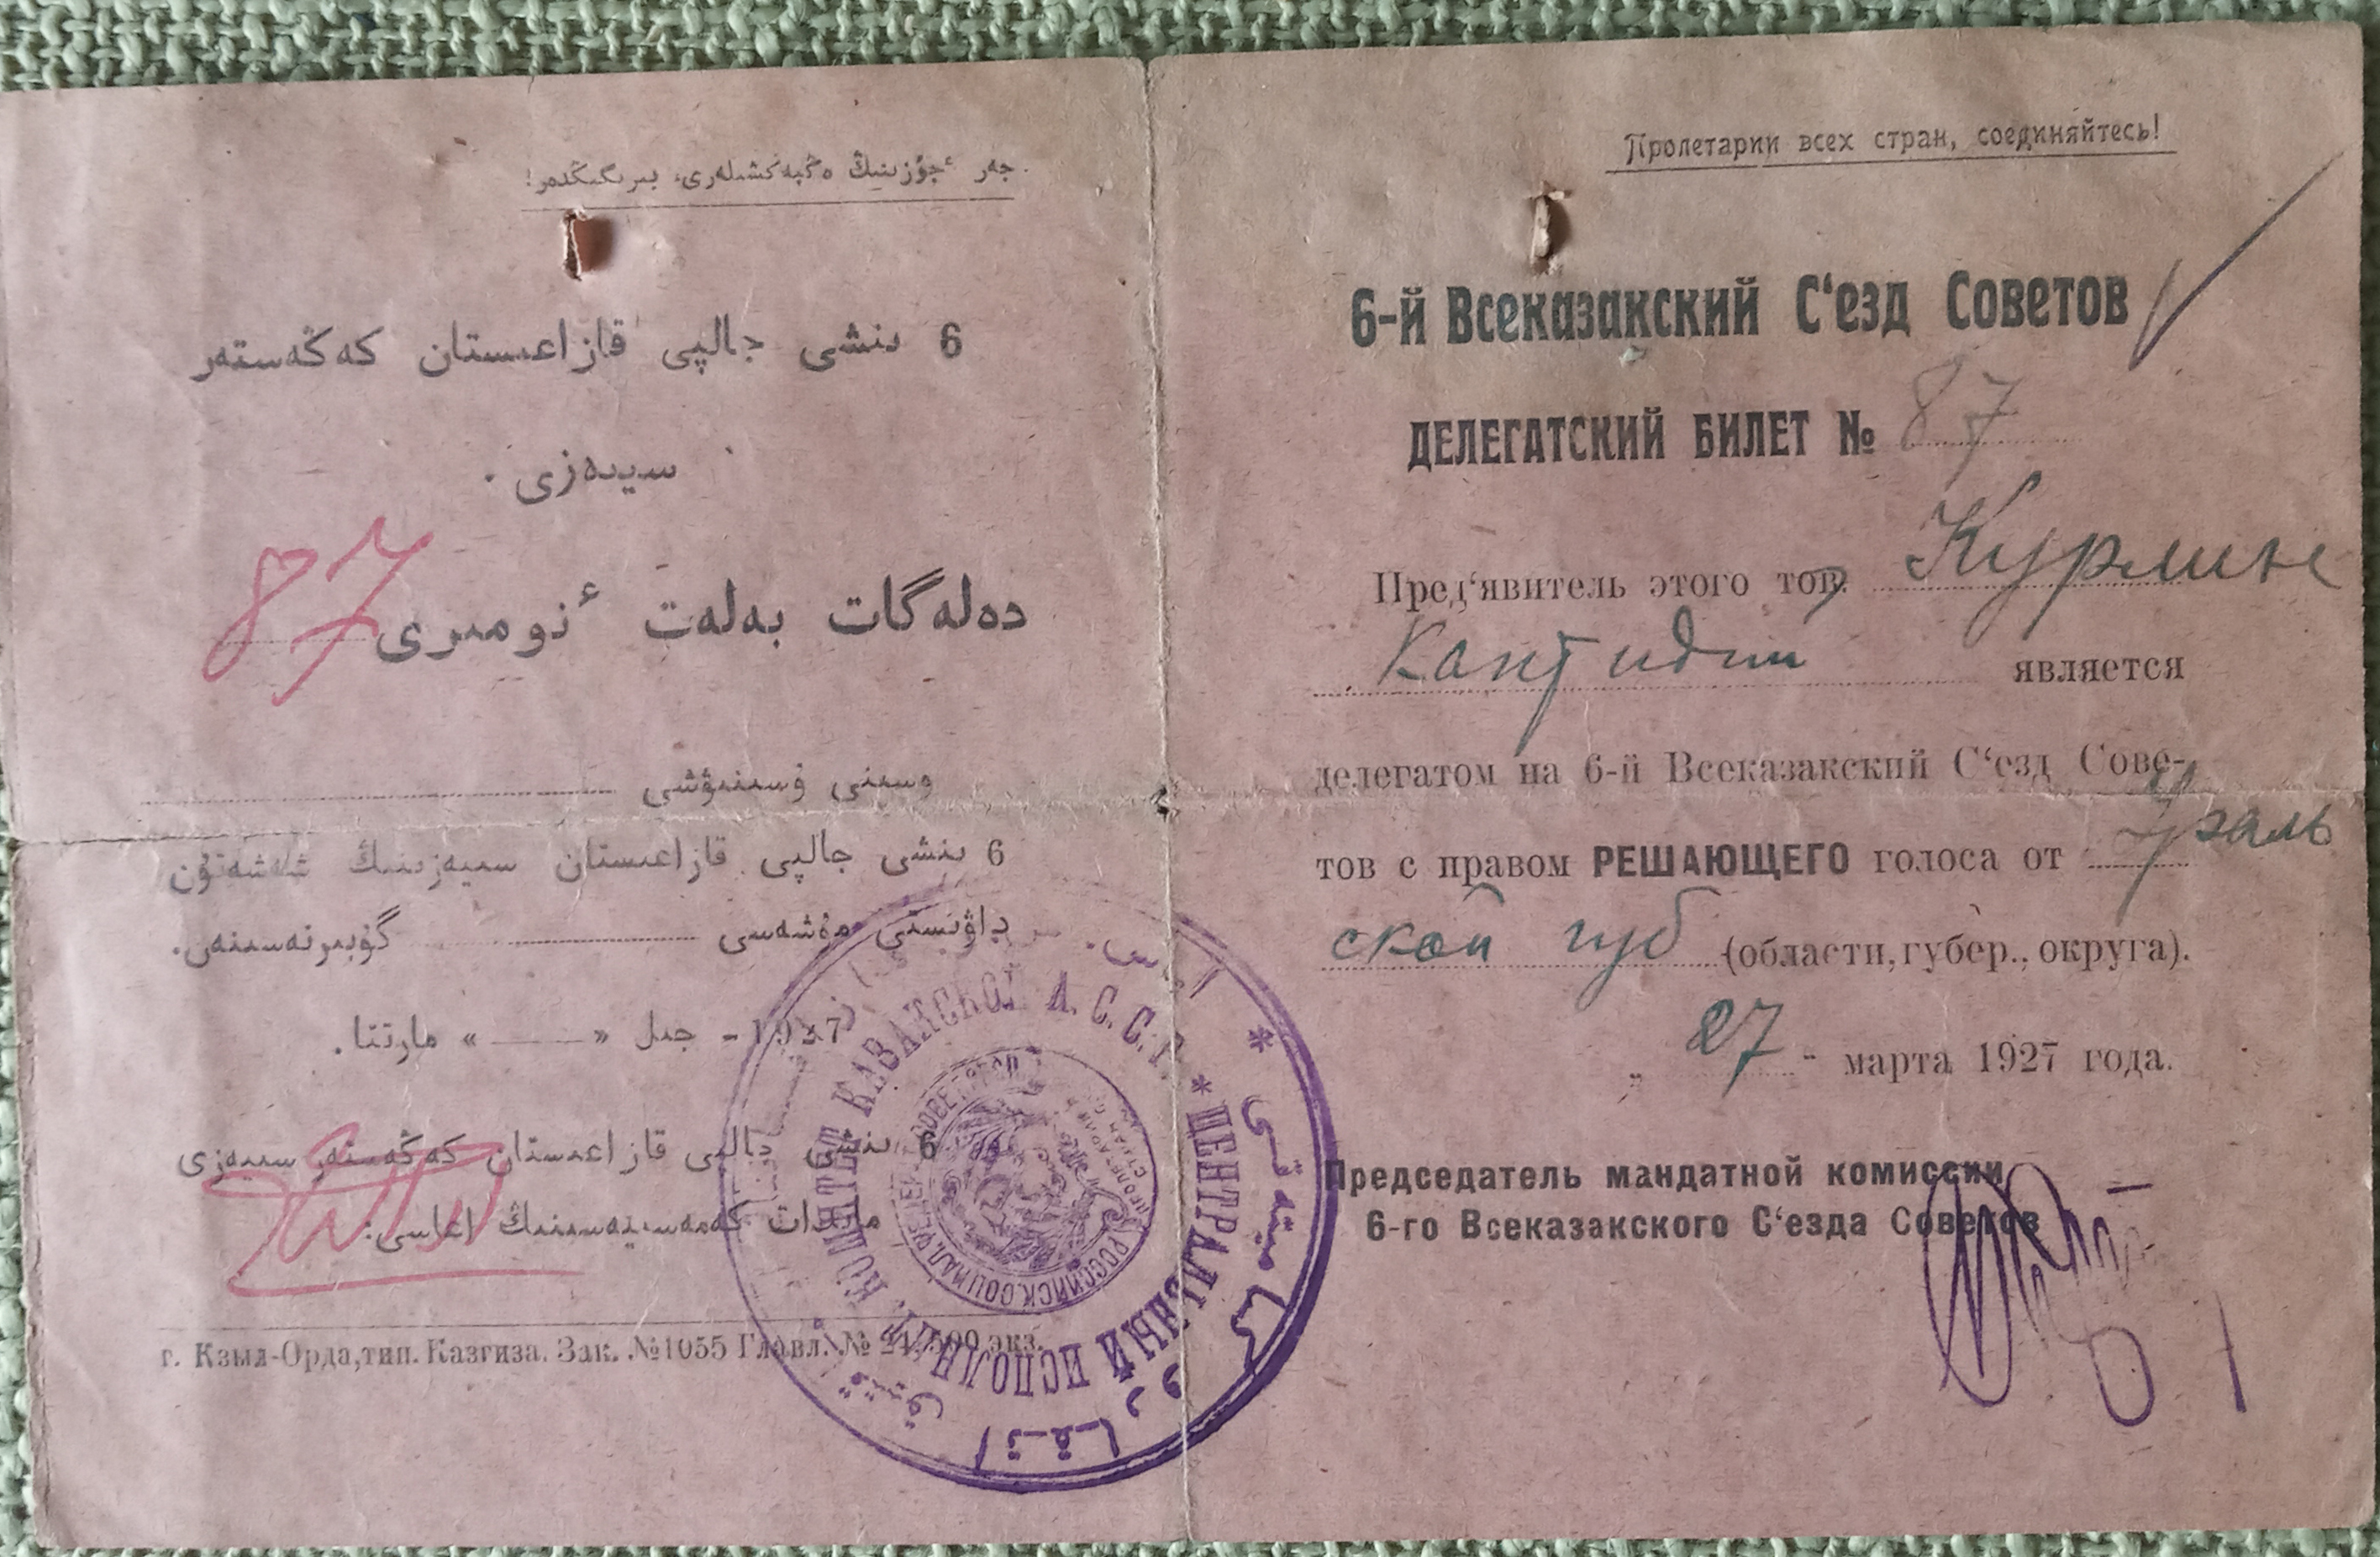 جەر ٴجۇزىنىڭ ەڭبەكشىلەرى، بىرىگىڭدەر!
6 ىنشى جالپى قازاعىستان كەڭەستەر
سييەزى.
دەلەگات بەلەت ٴنومىرى 87
وسىنى ۇسىنىۋشى
6 ىنشى جالپى قازاعىستان سىيەزىنىڭ شەشەتۇن
داۋىستى مۇشەسى گۇبىرنەسىنەن.
1927 - جىل « » مارتتا.
6 ىنشى جالپى قازاعىستان كەڭەستەر سىيەزى
ماندات كەمەسىيەسىنىڭ اعاسى:
г. Кзыл-Орда, тип. Казгиза. Зак. №1055 Главл. № 500 экз.
Пролетарии всех стран, соединяйтесь!
6-й Всеказакский С‘езд Советов
ДЕЛЕГАТСКИЙ БИЛЕТ № 87
Пред‘явитель этого тов.
является
делегатом на 6-й Всеказакский С‘езд Сове-
тов с правом РЕШАЮЩЕГО голоса от Ураль
ской губ (области, губер., округа).
„ 27 - марта 1927 года.
Председатель мандатной комиссии
6-го Всеказакского С‘езда Советов
* ЦЕНТРАЛЬНЫЙ ИСПОЛНИТ. КОМИТЕТ КАЗАКСКОЙ А. С. С. Р.